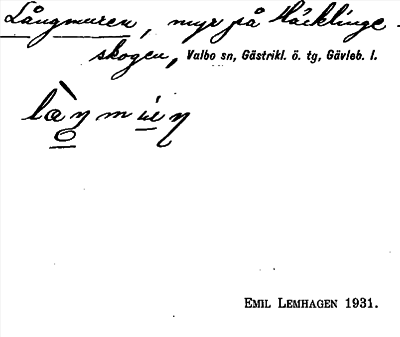 Långmuren, myr på Häcklinge-
skogen, Valbo sn, Gästrikl. ö. tg, Gävleb. l.
EMIL LEMHAGEN 1931.